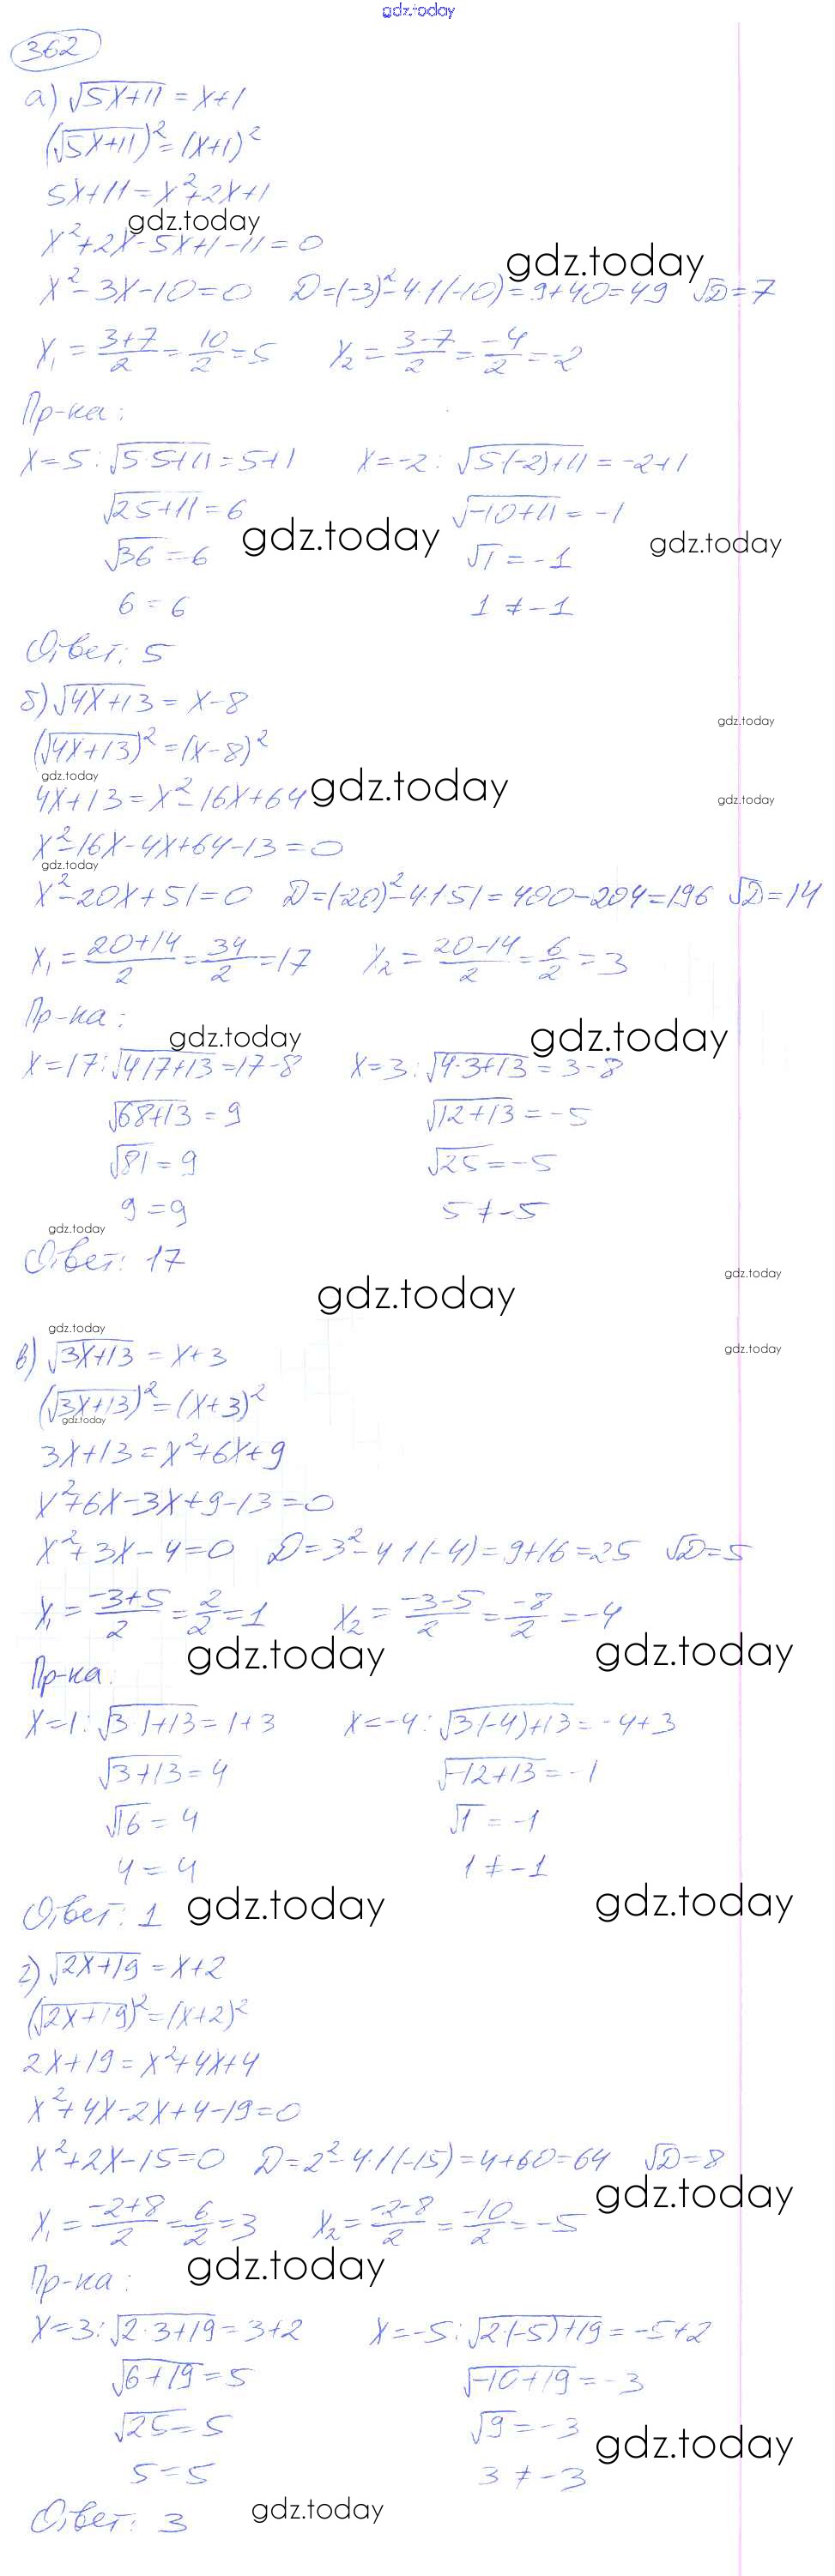 gdz.today
362
а) √5x+11 = x+1
(√5x+11)² = (x+1)²
5x+11 = x²+2x+1
gdz.today
x²+2x-5x+1-11=0
gdz.today
x²-3x-10=0 D=(-3)²-4·1(-10)=9+40=49 √D=7
x₁ = 3+7/2 = 10/2 = 5 x₂ = 3-7/2 = -4/2 = -2
Пр-ка:
x=5: √5·5+11 = 5+1 x=-2: √5(-2)+11 = -2+1
√25+11 = 6 √-10+11 = -1
gdz.today gdz.today
√36 = 6 √1 = -1
6 = 6 1 ≠ -1
Ответ: 5
б) √4x+13 = x-8
gdz.today
(√4x+13)² = (x-8)²
gdz.today gdz.today
4x+13 = x²-16x+64 gdz.today
x²-16x-4x+64-13=0
gdz.today
x²-20x+51=0 D=(-20)²-4·1·51=400-204=196 √D=14
x₁ = 20+14/2 = 34/2 = 17 x₂ = 20-14/2 = 6/2 = 3
Пр-ка:
gdz.today gdz.today
x=17: √4·17+13 = 17-8 x=3: √4·3+13 = 3-8
√68+13 = 9 √12+13 = -5
√81 = 9 √25 = -5
9 = 9 5 ≠ -5
gdz.today
Ответ: 17
gdz.today
gdz.today
gdz.today
в) √3x+13 = x+3
gdz.today
(√3x+13)² = (x+3)²
gdz.today
3x+13 = x²+6x+9
x²+6x-3x+9-13=0
x²+3x-4=0 D=3²-4·1(-4)=9+16=25 √D=5
x₁ = -3+5/2 = 2/2 = 1 x₂ = -3-5/2 = -8/2 = -4
gdz.today gdz.today
Пр-ка:
x=1: √3·1+13 = 1+3 x=-4: √3(-4)+13 = -4+3
√3+13 = 4 √-12+13 = -1
√16 = 4 √1 = -1
4 = 4 1 ≠ -1
Ответ: 1 gdz.today gdz.today
г) √2x+19 = x+2
(√2x+19)² = (x+2)²
2x+19 = x²+4x+4
x²+4x-2x+4-19=0
x²+2x-15=0 D=2²-4·1(-15)=4+60=64 √D=8
gdz.today
x₁ = -2+8/2 = 6/2 = 3 x₂ = -2-8/2 = -10/2 = -5
gdz.today
Пр-ка:
x=3: √2·3+19 = 3+2 x=-5: √2·(-5)+19 = -5+2
√6+19 = 5 √-10+19 = -3
√25 = 5 √9 = -3
gdz.today
5 = 5 3 ≠ -3
Ответ: 3 gdz.today